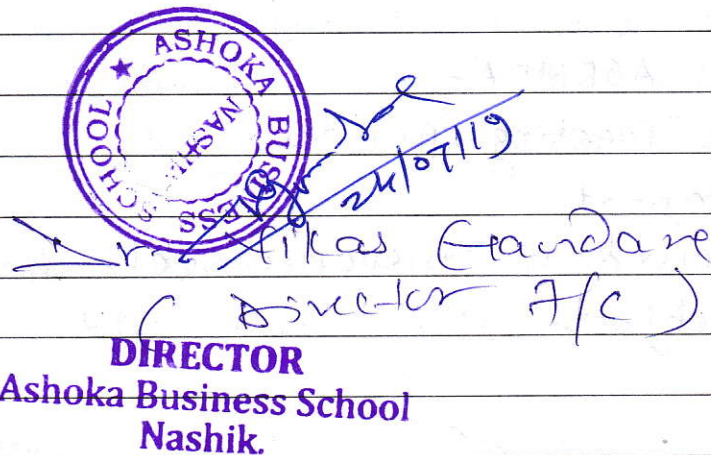 ★ ASHOKA BUSINESS SCHOOL
NASHIK
24/07/19
Dr. Vikas Gaundare
( Director I/C )
DIRECTOR
Ashoka Business School
Nashik.